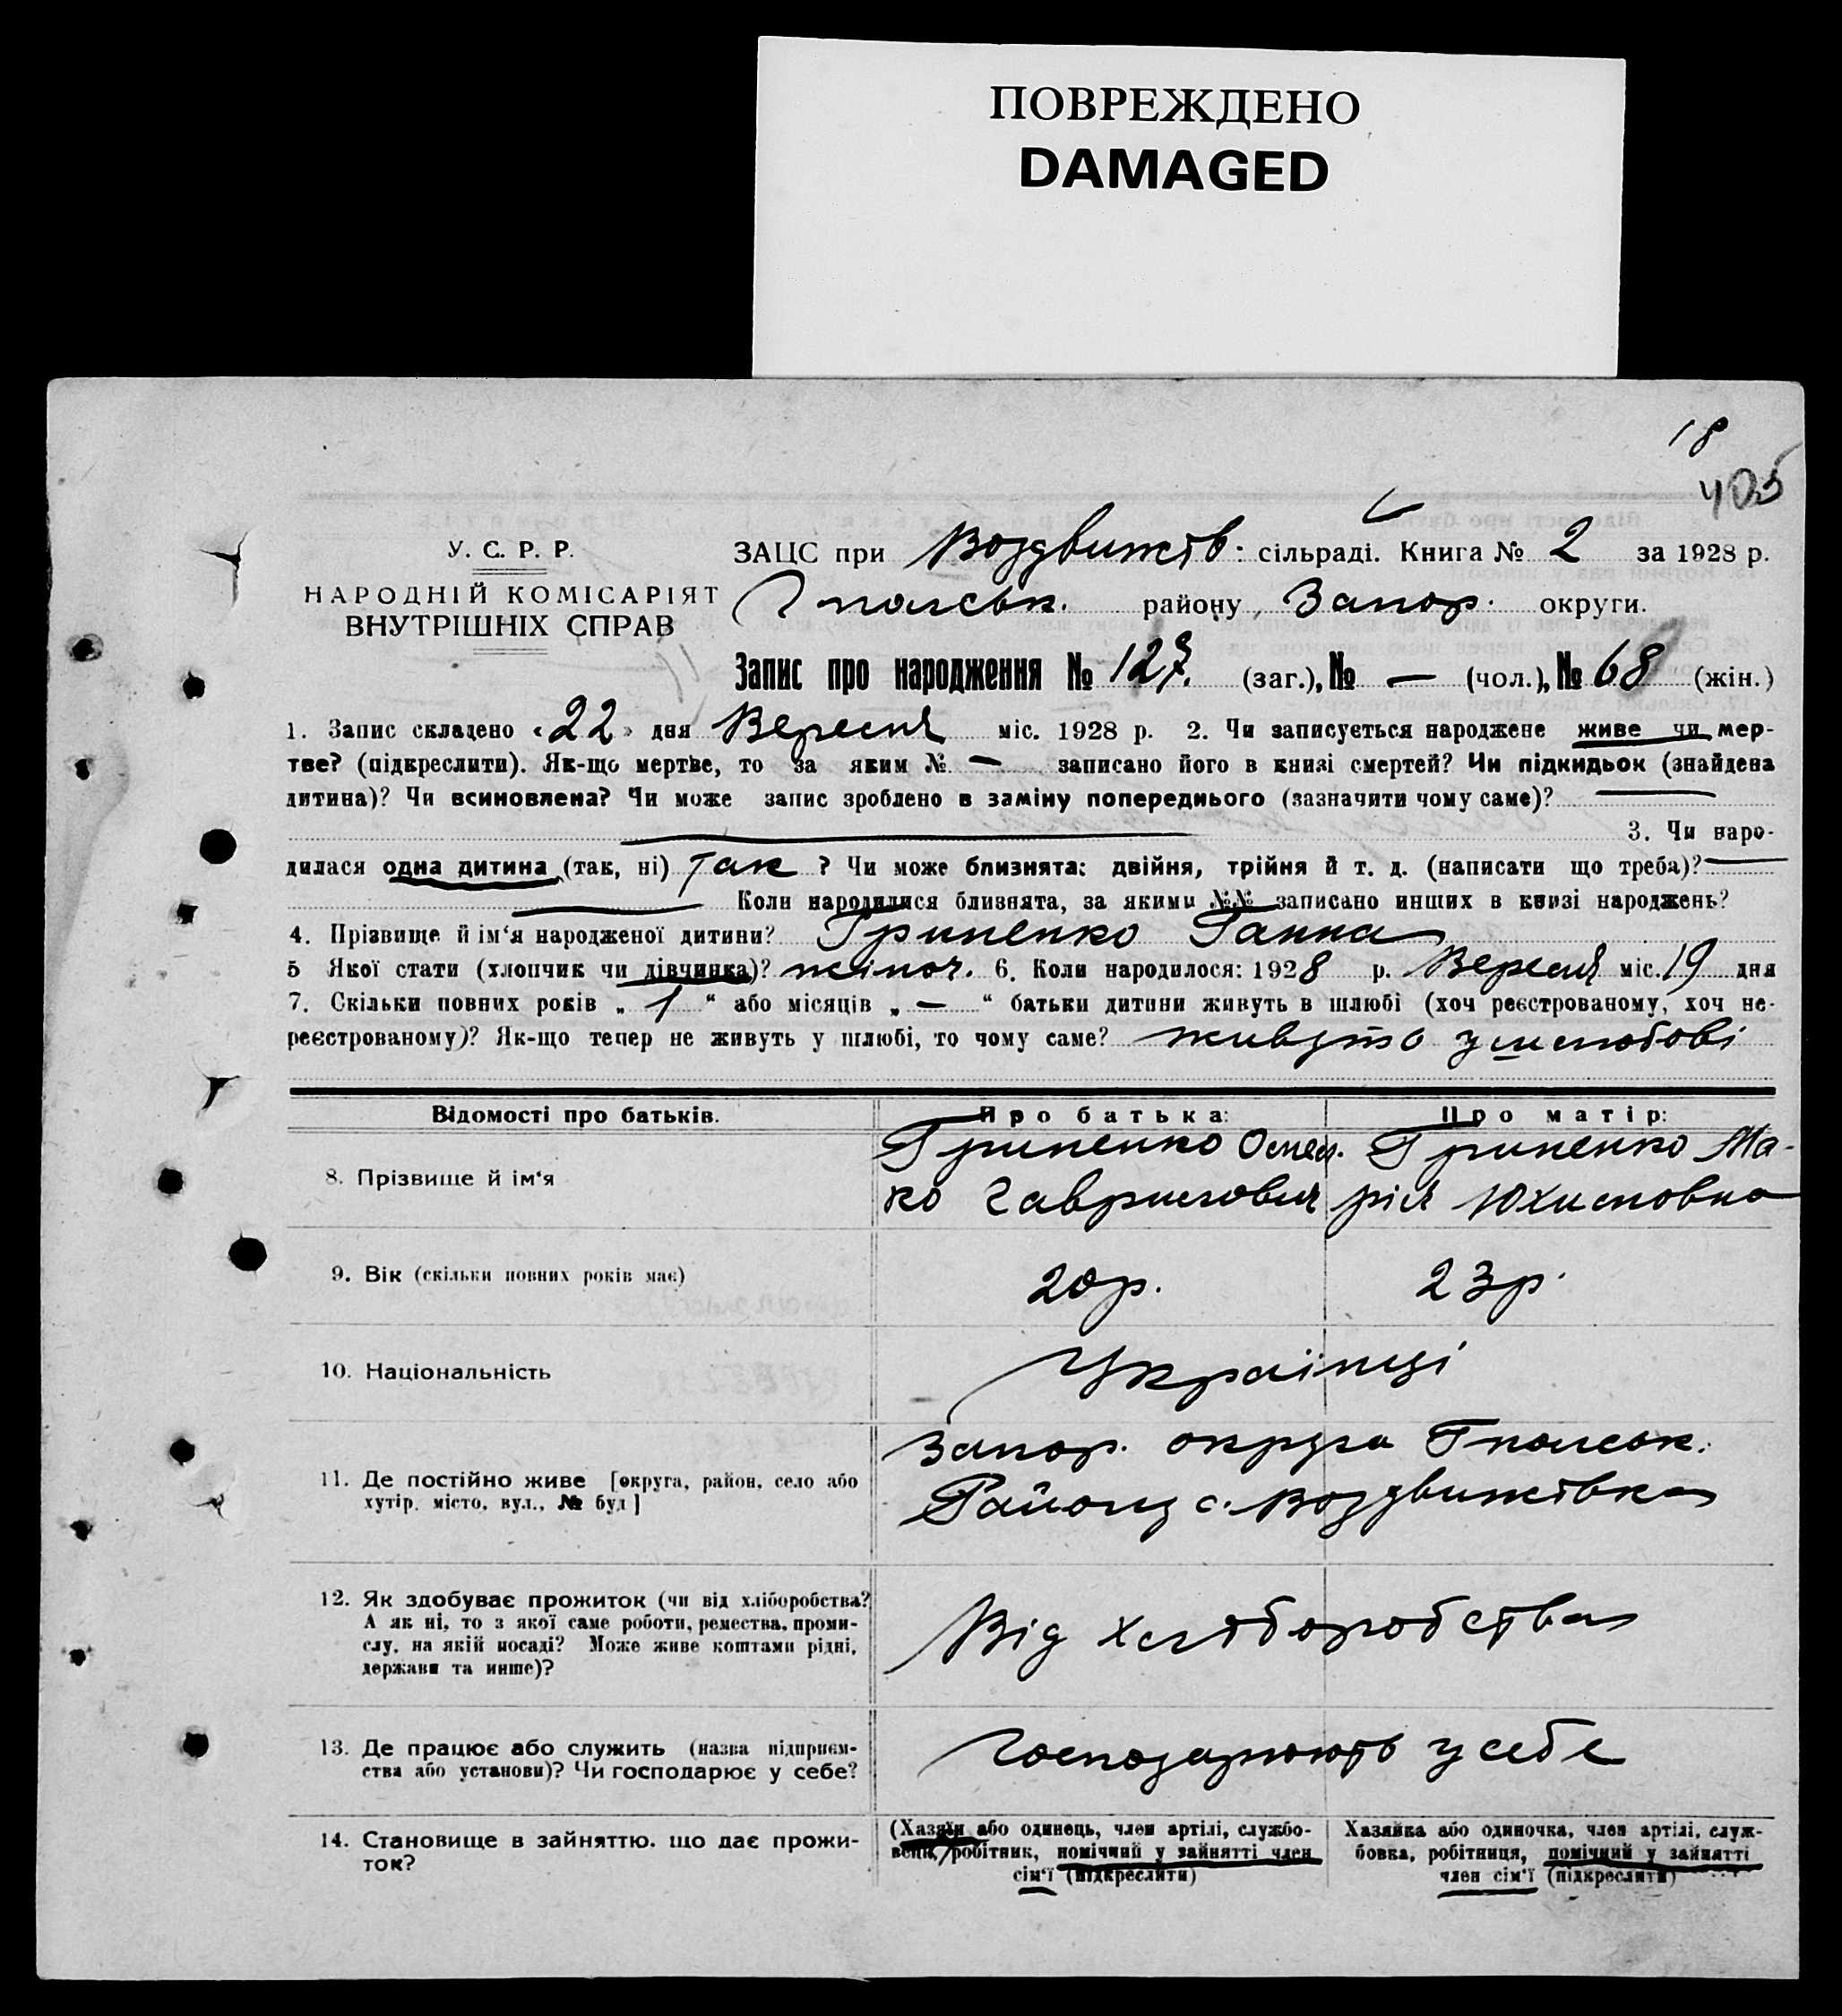 ПОВРЕЖДЕНО
DAMAGED
18
405
У. С. Р. Р.
НАРОДНІЙ КОМІСАРІЯТ
ВНУТРІШНІХ СПРАВ
ЗАЦС при Воздвижів: сільраді. Книга № 2 за 1928 р.
Гполськ. району Запор. округи.
Запис про народження № 127. (заг.), № — (чол.), № 68 (жін.)
1. Запис складено «22» дня Вересня міс. 1928 р. 2. Чи записується народжене живе чи мер-
тве? (підкреслити). Як-що мертве, то за яким № — записано його в книзі смертей? Чи підкидьок (знайдена
дитина)? Чи всиновлена? Чи може запис зроблено в заміну попереднього (зазначити чому саме)? —
3. Чи наро-
дилася одна дитина (так, ні) Так ? Чи може близнята: двійня, трійня й т. д. (написати що треба)? —
Коли народилися близнята, за якими №№ записано инших в книзі народжень?
4. Прізвище й ім‘я народженої дитини? Гриненко Ганна
5 Якої стати (хлопчик чи дівчинка)? жіноч. 6. Коли народилося: 1928 р. Вересня міс. 19 дня
7. Скільки повних років „ 1 “ або місяців „ — “ батьки дитини живуть в шлюбі (хоч реєстрованому, хоч не-
реєстрованому)? Як-що тепер не живуть у шлюбі, то чому саме? живуть у шлюбові
Відомості про батьків. Про батька: Про матір:
8. Прізвище й ім‘я
Гриненко Омел. Гриненко Ма-
ко Гаврилович рія Юхимовна
9. Вік (скільки повних років має) 20р. 23р.
10. Національність Українці
Запор. округа Гполськ.
11. Де постійно живе [округа, район, село або
хутір, місто, вул., № буд] Району с. Воздвижівка
12. Як здобуває прожиток (чи від хліборобства?
А як ні, то з якої саме роботи, ремества, проми-
слу, на якій посаді? Може живе коштами рідні,
держави та инше)?
Від хліборобства
13. Де працює або служить (назва підприєм-
ства або установи)? Чи господарює у себе?
Господарюють у себе
14. Становище в зайняттю. що дає прожи-
ток?
(Хазяїн або одинець, член артілі, службо-
вець, робітник, помічний у зайнятті член
сім‘ї (підкреслити)
Хазяйка або одиночка, член артілі, служ-
бовка, робітниця, помічний у зайнятті
член сім‘ї (підкреслити)